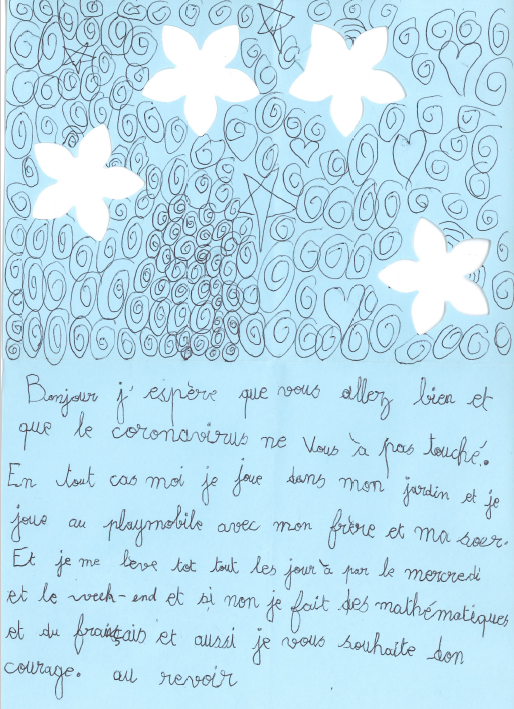 Bonjour j'espère que vous allez bien et
que le coronavirus ne vous à pas touché.
En tout cas moi je joue dans mon jardin et je
joue au playmobile avec mon frère et ma sœur.
Et je me lève tot tout les jour à par le mercredi
et le week-end et si non je fait des mathématiques
et du français et aussi je vous souhaite don
courage. au revoir